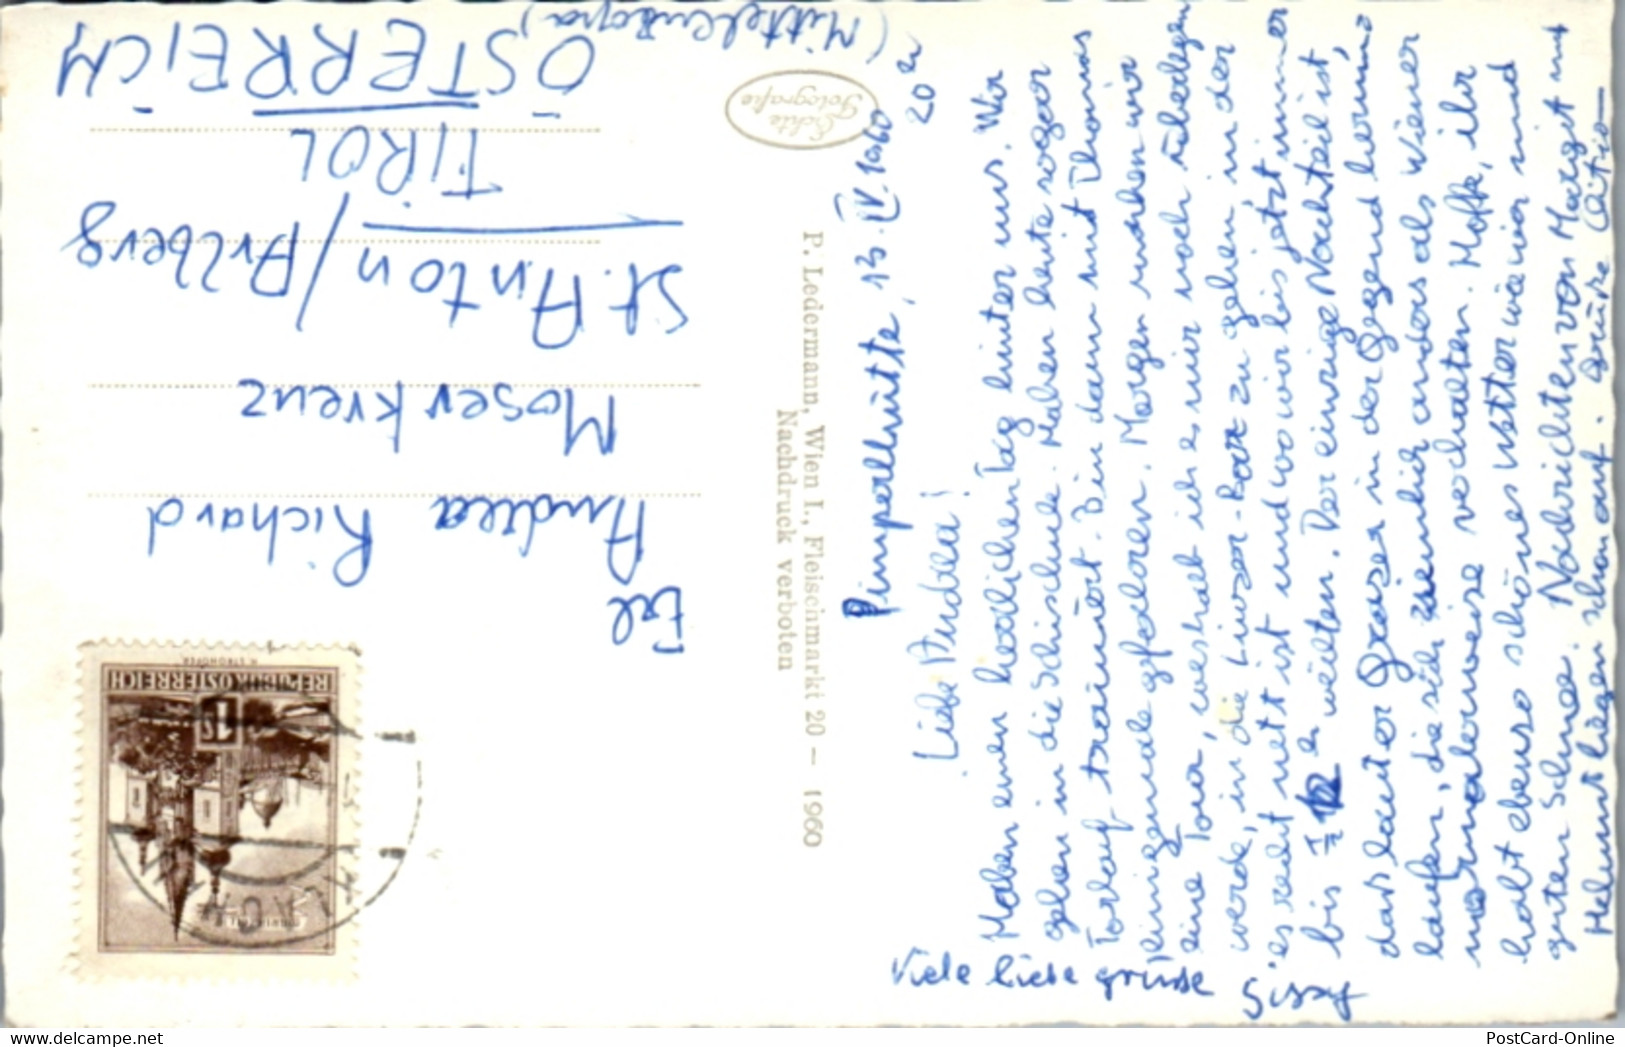 Pimperlhütte, 13. IV. 1960
20 h
Liebe Andrea!
Haben einen herrlichen Tag hinter uns. Wir
gehen in die Schischule. Haben heute sogar
Torlauf trainiert. Bin dann mit Thomas
einige male gefahren. Morgen machen wir
eine Tour, weshalb ich es mir noch überlegen
werde, in die Bar zu gehen, in der
es recht nett ist und wo wir bis jetzt immer
bis weilten. Der einzige Nachteil ist,
daß lauter Grazer in der Gegend herum
laufen, die sich ziemlich anders als Wiener
normalerweise verhalten. Hoffe, ihr
habt ebenso schönes Wetter wie wir und
guten Schnee. Nachrichten von Margit mit
Helmut liegen schon auf. Grüße
Viele liebe Grüsse Sissy
Echte
Fotografie
P. Ledermann, Wien I., Fleischmarkt 20 — 1960
Nachdruck verboten
REPUBLIK ÖSTERREICH
1 S
Frl
Andrea Richard
Moserkreuz
St. Anton/Arlberg
TIROL
ÖSTERREICH
(Mitteleuropa)
PostCard-Online
www.delcampe.net